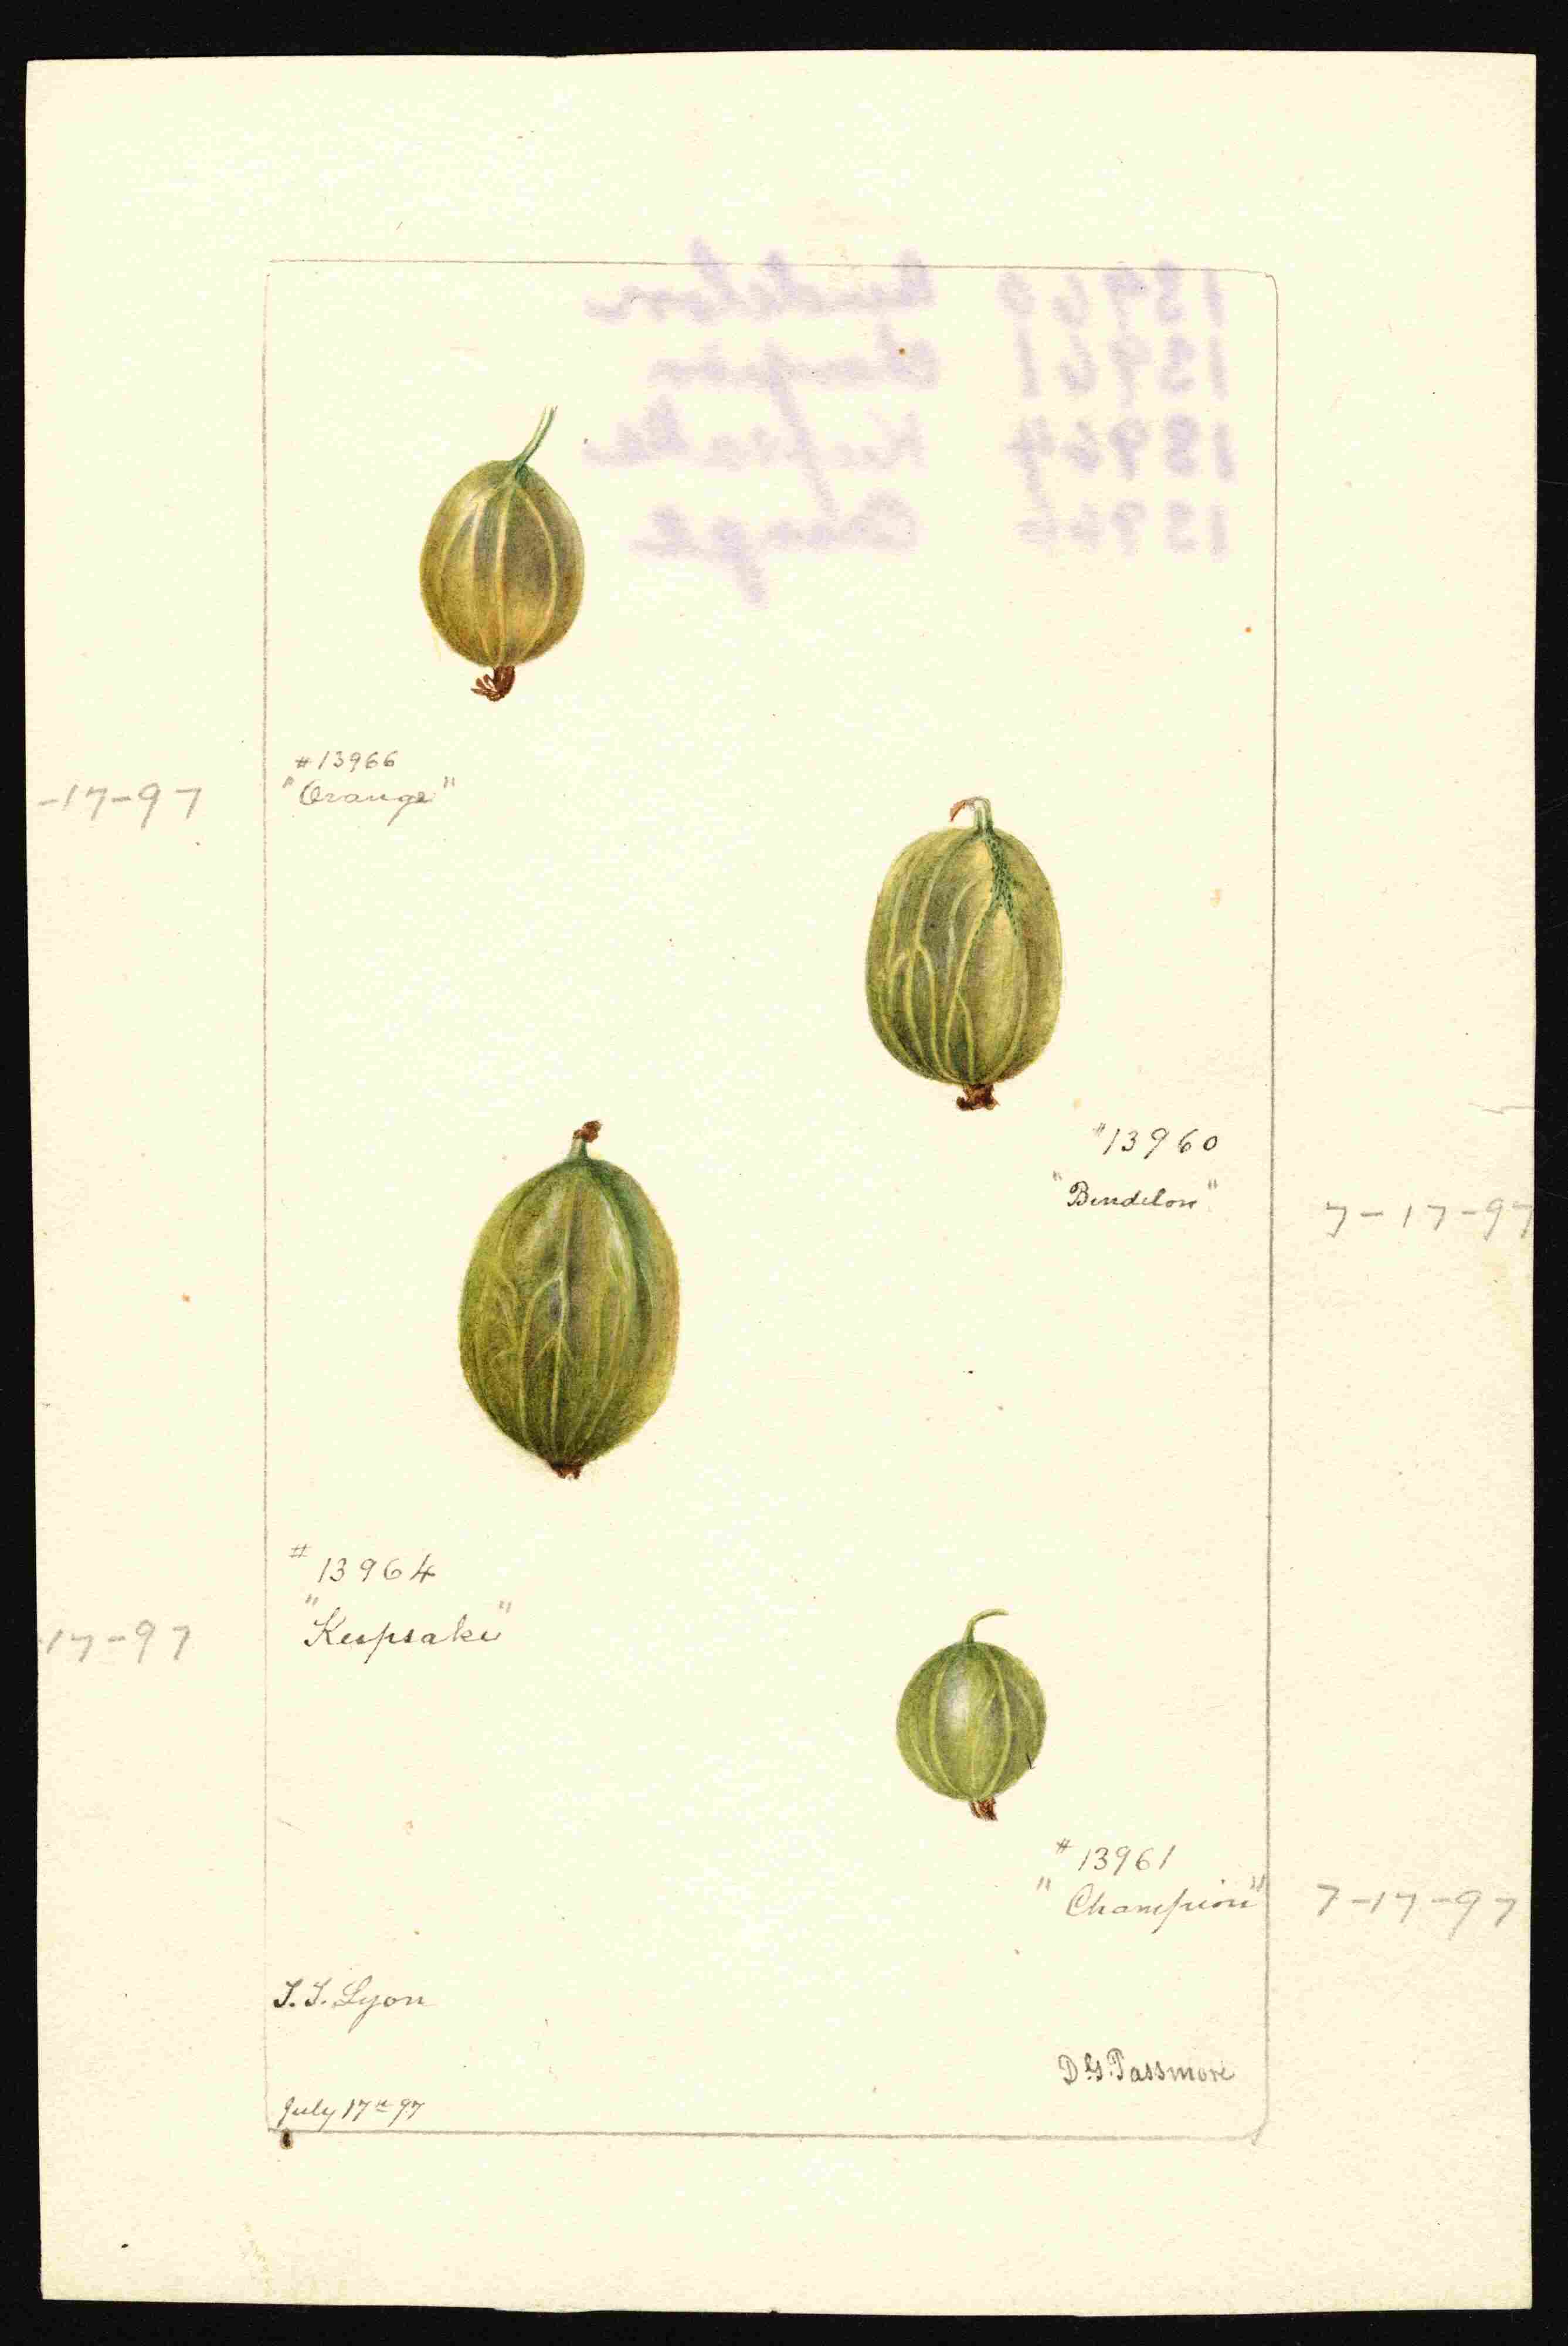 13960 Bendelon
13961 Champion
13964 Keepsake
13966 Orange
#13966
"Orange"
-17-97
#13960
"Bendelon"
7-17-97
#13964
"Keepsake"
17-97
#13961
"Champion"
7-17-97
T.T. Lyon
D.G. Passmore
July 17th 97